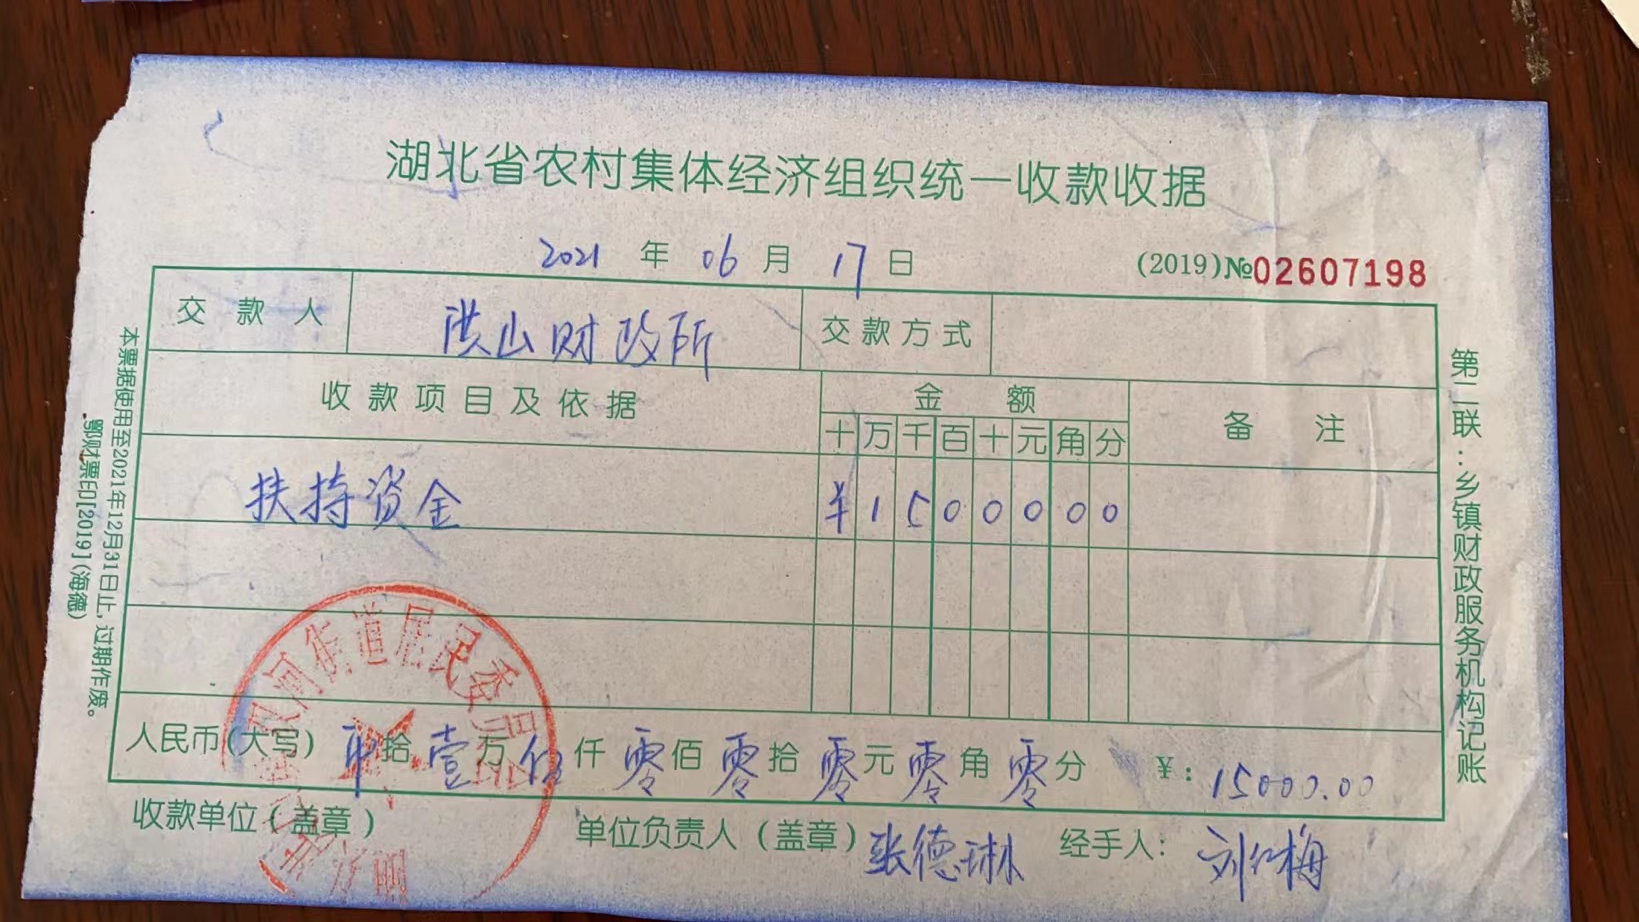 湖北省农村集体经济组织统一收款收据
2021 年 06 月 17 日
(2019)№02607198
交款人 洪山财政所 交款方式
收款项目及依据 金额 备注
十 万 千 百 十 元 角 分
扶持资金 ¥ 1 5 0 0 0 0 0
人民币(大写) 拾 壹 万 伍 仟 零 佰 零 拾 零 元 零 角 零 分 ¥: 15000.00
收款单位(盖章) 单位负责人(盖章) 张德琳 经手人: 刘红梅
第二联:乡镇财政服务机构记账
本票据使用至2021年12月31日止,过期作废。
鄂财票印[2019](海德)
双河街道居民委员会